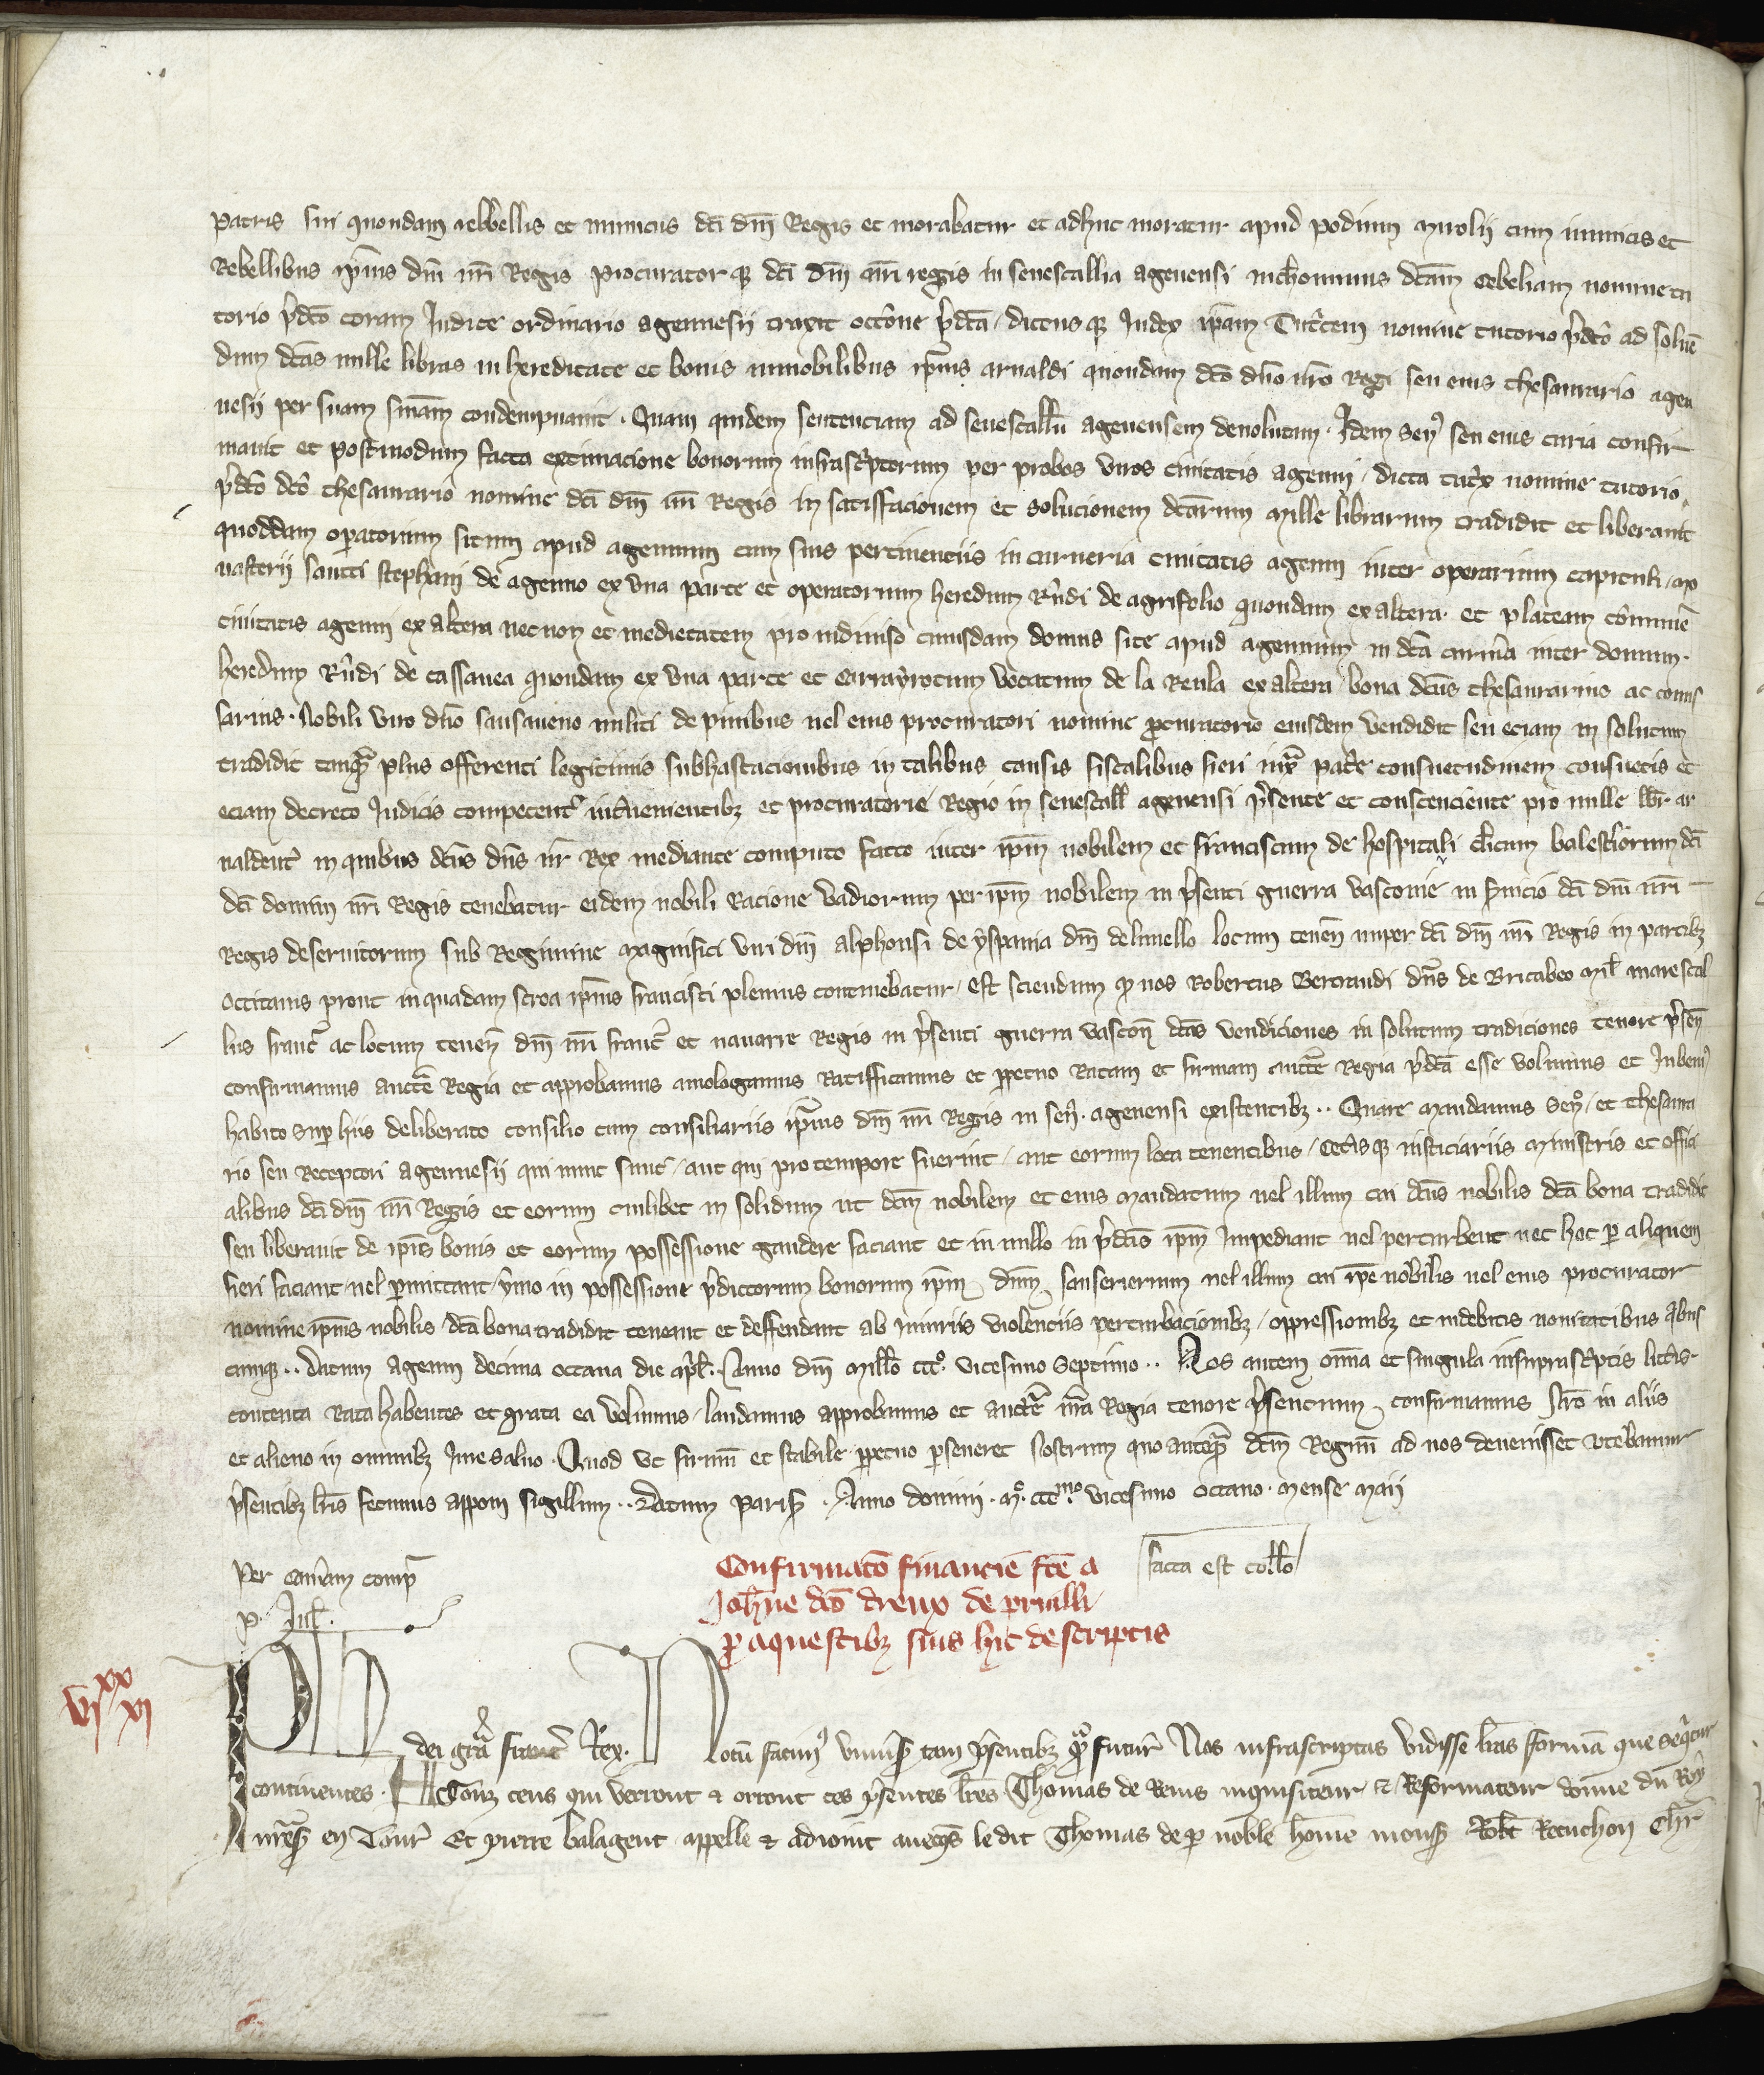 patris sui quondam rebbellis et inimicus dci dni Regis et morabatur et adhuc moratur apud podium mirolii cum inimicis et
Rebellibus ipius dni nri Regis procurator qz dci dni nri regis in senescallia agenensi nichominus dcam cebeliam nomine tu
torio pdco coram Judice ordinario agennesii traxit occone pdca / dictus qz Judex ipam Tutcem nomine tutorio pdco ad soluen
dum dcas mille libras in hereditate et bonis inmobilibus ipius arnaldi quondam dco dno nro Regi seu eius thesaurario agen
nesii per suam sniam condempnauit . Quam quidem sentenciam ad senescallu agenensem deuolutam . Idem Sen seu eius curia confir
mauit et postmodum facta extimacione bonorum infrascptorum per probos viros ciuitatis agenni / dicta tutx nomine tutorio
pdco dco thesaurario nomine dci dni nri Regis in satisfacionem et solucionem dcarum mille librarum tradidit et liberauit
quoddam operatorium situm apud agennum cum suis pertinenciis in carneria ciuitatis agenni inter operarium capituli mo
nasterii sancti stephani de agenno ex vna parte et operatorium heredum Rndi de agrifolio quondam ex altera . et plateam commune
ciuitatis agenni ex altera necnon et medietatem pro indiuiso cuiusdam domus site apud agennum in dca carnia inter domum
heredum Rndi de cassanea quondam ex vna parte et carrayrotum vocatum de la Reula ex altera bona dcus thesaurarius ac comis
sarius . Nobili viro dno sansauero militi de pinibus uel eius procuratori nomine pcuratorio eiusdem vendidit seu eciam in solutum
tradidit tanqm plus offerenti legitimis subhastacionibus in talibus causis fiscalibus fieri iuxta patrie consuetudinem consuetis et
eciam decreto Judicis competent interuenientibz et procuratore Regio in senescall agenensi psente et consenciente pro mille libr ar
naldent in quibus dcus dns nr Rex mediante computo facto inter ipm nobilem et franciscum de hospitali clicum balestiorum dci
dci domini nri Regis tenebatur eidem nobili Racione vadiorum per ipm nobilem in psenti guerra vasconie in seruicio dci dni nri
Regis deseruitorum sub Regimine magnifici viri dni alphonsi de yspania dni de lunello locum tenen nuper dci dni nri Regis in partibz
occitanis prout in quadam scroa ipius francisci plenius continebatur / est sciendum qd nos Robertus Bertrandi dns de Bricabeo mil marescal
lus franc ac locum tenens dni nri franc et nauarre Regis in psenti guerra vascon dcas vendiciones in solutum tradiciones tenore psen
confirmamus aucte Regia et approbamus amologamus Ratifficamus et perpetuo Ratam et firmam aucte Regia pdca esse volumus et Jubem
habito Sup hiis deliberato consilio cum consiliariis ipius dni nri Regis in sen . agenensi existentibz . . Quare mandamus Sen / et thesaura
rio seu Receptori agennesii qui nunc sunt / aut qui pro tempore fuerint / aut eorum loca tenentibus / cetis qz iusticiariis ministris et offici
alibus dci dni nri Regis et eorum cuilibet in solidum ut dcm nobilem et eius mandatum uel illum cui dcus nobilis dca bona tradidit
seu liberauit de ipis bonis et eorum possessione gaudere faciant et in nullo in pdcis ipm Impediant uel perturbent nec hoc p aliquem
fieri faciant / uel pmittant / ymo in possessione pdictorum bonorum ipm dnm sanserierum uel illum cui ipe nobilis uel eius procurator
nomine ipius nobilis dca bona tradidit teneant et deffendant ab iniuriis violenciis perturbacionibz / oppressionibz et indebitis nouitatibus abus
cumqz . . datum agenni decima octaua die apl . Anno dni millo ccc° vicesimo Septimo . . Nos autem omnia et singula in suprascptis litis
contenta Rata habentes et grata ea volumus / laudamus approbamus et aucte nra Regia tenore psentium confirmamus Nro in aliis
et alieno in omnibz iure saluo . Quod vt firmu et stabile ppetuo pseueret Nostrum quo anteqm dcm Regnum ad nos deuenisset vtebamur
psentibz lris fecimus apponi sigillum . . Datum parisius . Anno domini . m° ccc mo vicesimo octauo . mense maii
Per camam comp
facta est collo
p . Jul .
Confirmaco financie fce a
Johne dco dreux de pruilli
p aquestibz suis hic descriptis
vi xx xi
Ph dei gra franc Rex . Notu facim vniusis tam psentibz qm futur Nos infrascriptas vidisse lras formam que sequtur
continentes . A Touz ceus qui verront & orront ces psentes lres Thomas de Reins inquisiteur & Reformateur donne du Roy
nresr en Tour Et pierre balagent appelle & adioint auecqs le dit Thomas de p noble home mons Robt Recuchon Chr